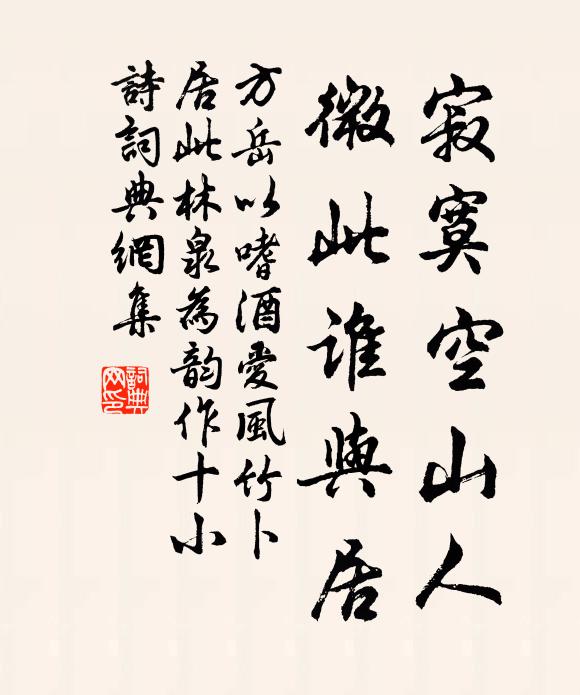 寂寞空山人
微此谁與居
方岳以嗜酒愛風竹卜
居此林泉為韵作十小
詩詞典網集
詞典網印